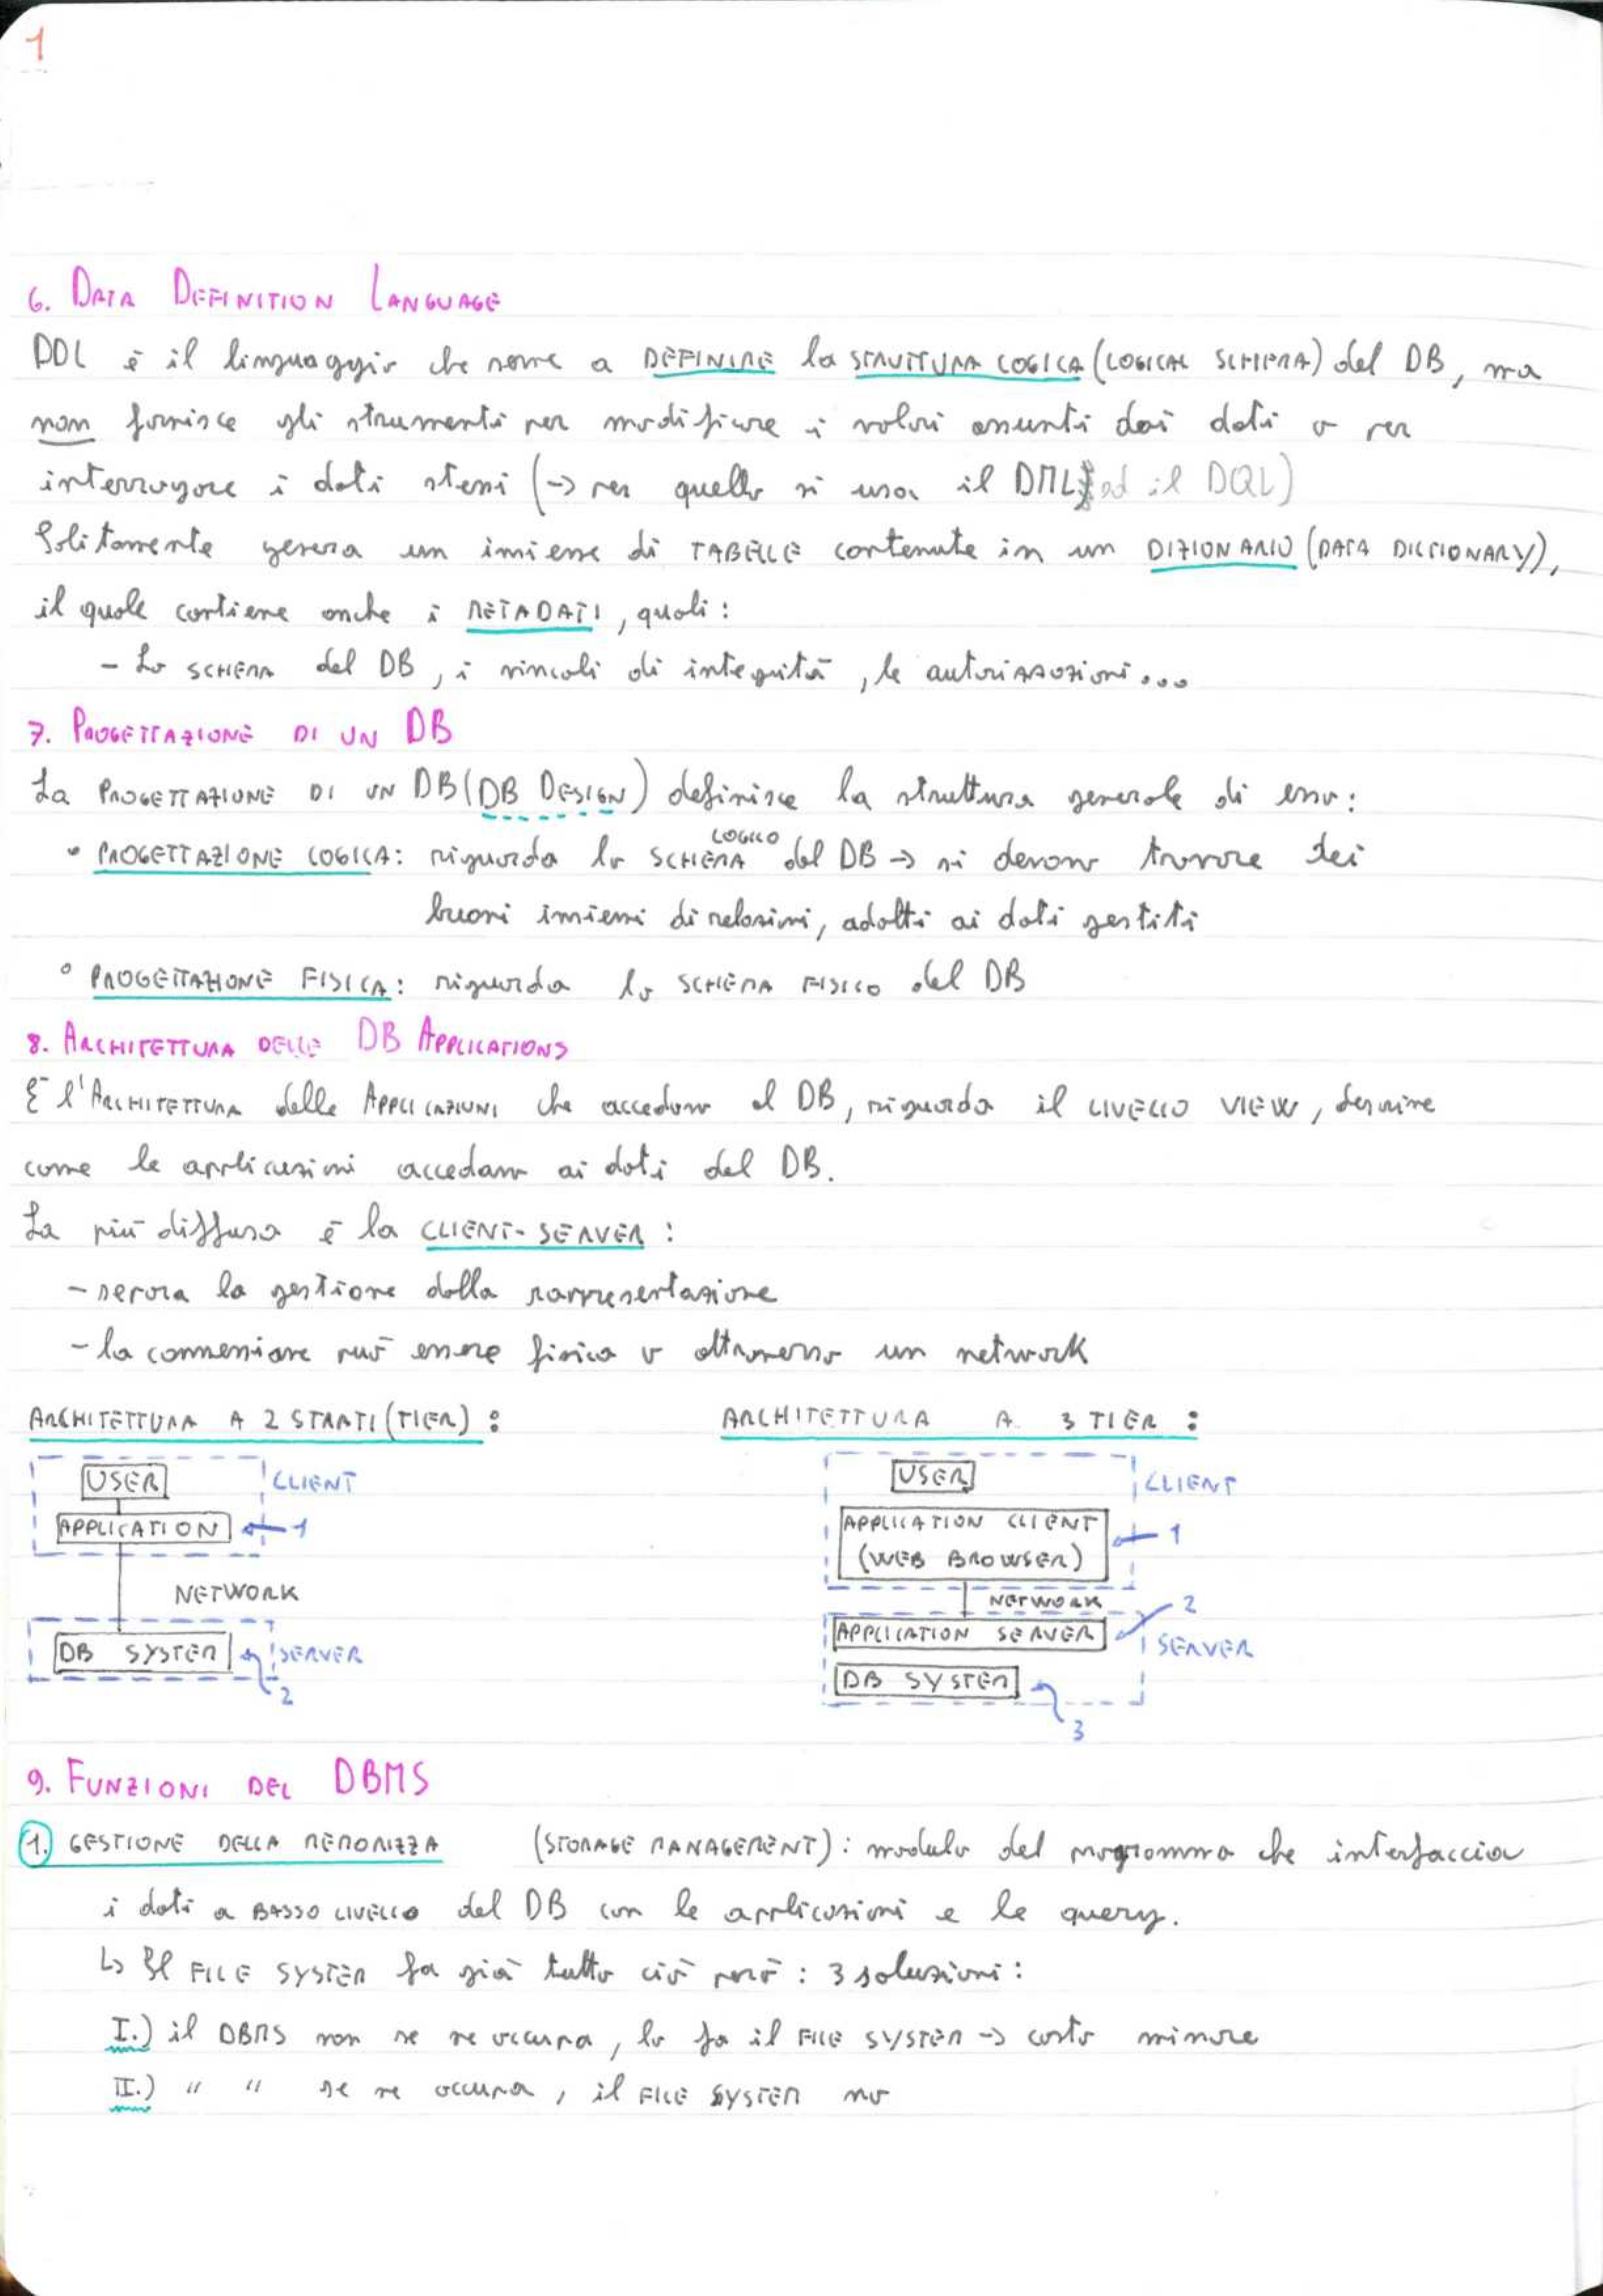 1
6. DATA DEFINITION LANGUAGE
DDL è il linguaggio che serve a DEFINIRE la STRUTTURA LOGICA (LOGICAL SCHEMA) del DB, ma
non fornisce gli strumenti per modificare i valori assunti dai dati o per
interrogare i dati stessi (-> per quello si usa il DML ed il DQL)
Solitamente genera un insieme di TABELLE contenute in un DIZIONARIO (DATA DICTIONARY),
il quale contiene anche i METADATI, quali:
- Lo SCHEMA del DB, i vincoli di integrità, le autorizzazioni...
7. PROGETTAZIONE DI UN DB
La PROGETTAZIONE DI UN DB (DB DESIGN) definisce la struttura generale di esso:
• PROGETTAZIONE LOGICA: riguarda lo SCHEMA LOGICO del DB -> si devono trovare dei
buoni insiemi di relazioni, adatti ai dati gestiti
• PROGETTAZIONE FISICA: riguarda lo SCHEMA FISICO del DB
8. ARCHITETTURA DELLE DB APPLICATIONS
È l'ARCHITETTURA delle APPLICAZIONI che accedono al DB, riguarda il LIVELLO VIEW, descrive
come le applicazioni accedano ai dati del DB.
La più diffusa è la CLIENT-SERVER:
- separa la gestione dalla rappresentazione
- la connessione può essere fisica o attraverso un network
ARCHITETTURA A 2 STRATI (TIER): ARCHITETTURA A 3 TIER:
USER CLIENT USER CLIENT
APPLICATION 1 APPLICATION CLIENT 1
(WEB BROWSER)
NETWORK NETWORK 2
DB SYSTEM SERVER APPLICATION SERVER SERVER
2 DB SYSTEM
3
9. FUNZIONI DEL DBMS
1. GESTIONE DELLA MEMORIZZA (STORAGE MANAGEMENT): modulo del programma che interfaccia
i dati a BASSO LIVELLO del DB con le applicazioni e le query.
↳ Il FILE SYSTEM fa già tutto ciò però: 3 soluzioni:
I.) il DBMS non se ne occupa, lo fa il FILE SYSTEM -> costo minore
II.) " " se ne occupa, il FILE SYSTEM no